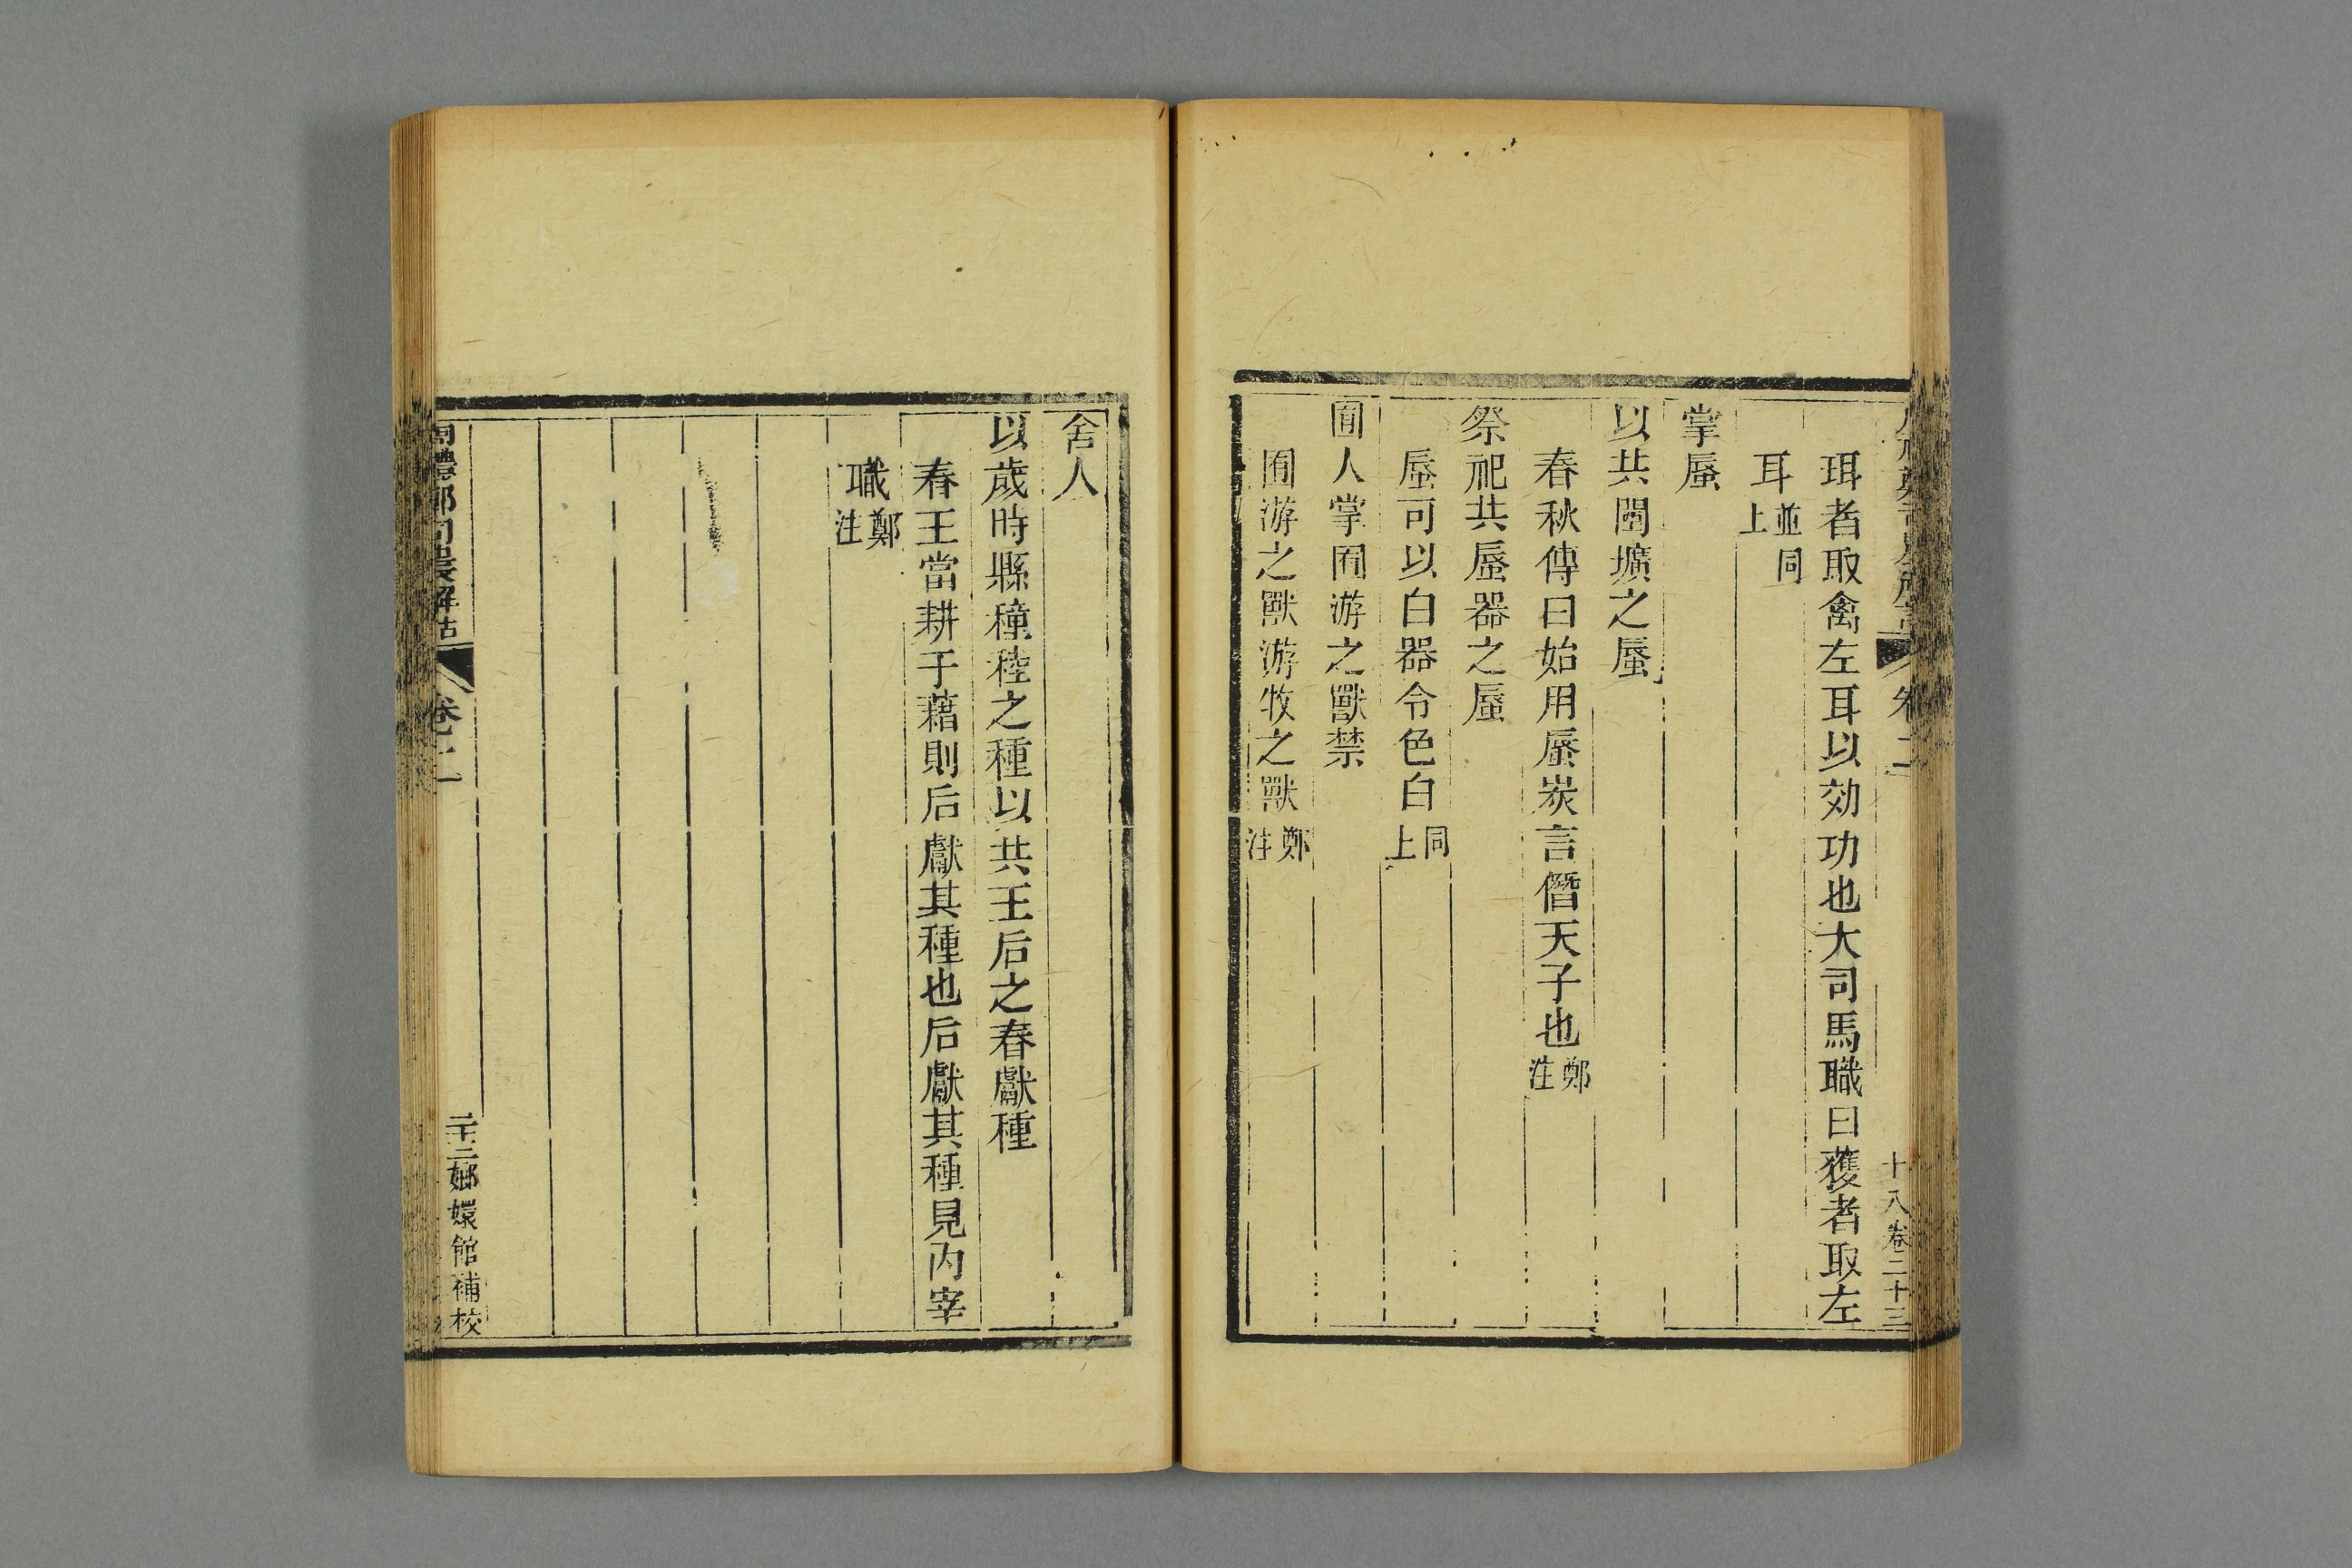 珥者取禽左耳以効功也大司馬職曰獲者取左
耳並同上
掌蜃
以共闉壙之蜃
春秋傳曰始用蜃炭言僭天子也鄭注
祭祀共蜃器之蜃
蜃可以白器令色白同上
囿人掌囿游之獸禁
囿游之獸游牧之獸鄭注
舍人
以歲時縣穜稑之種以共王后之春獻種
春王當耕于藉則后獻其種也后獻其種見內宰
職鄭注
卷二
嫏嬛館補校
十八卷二十三